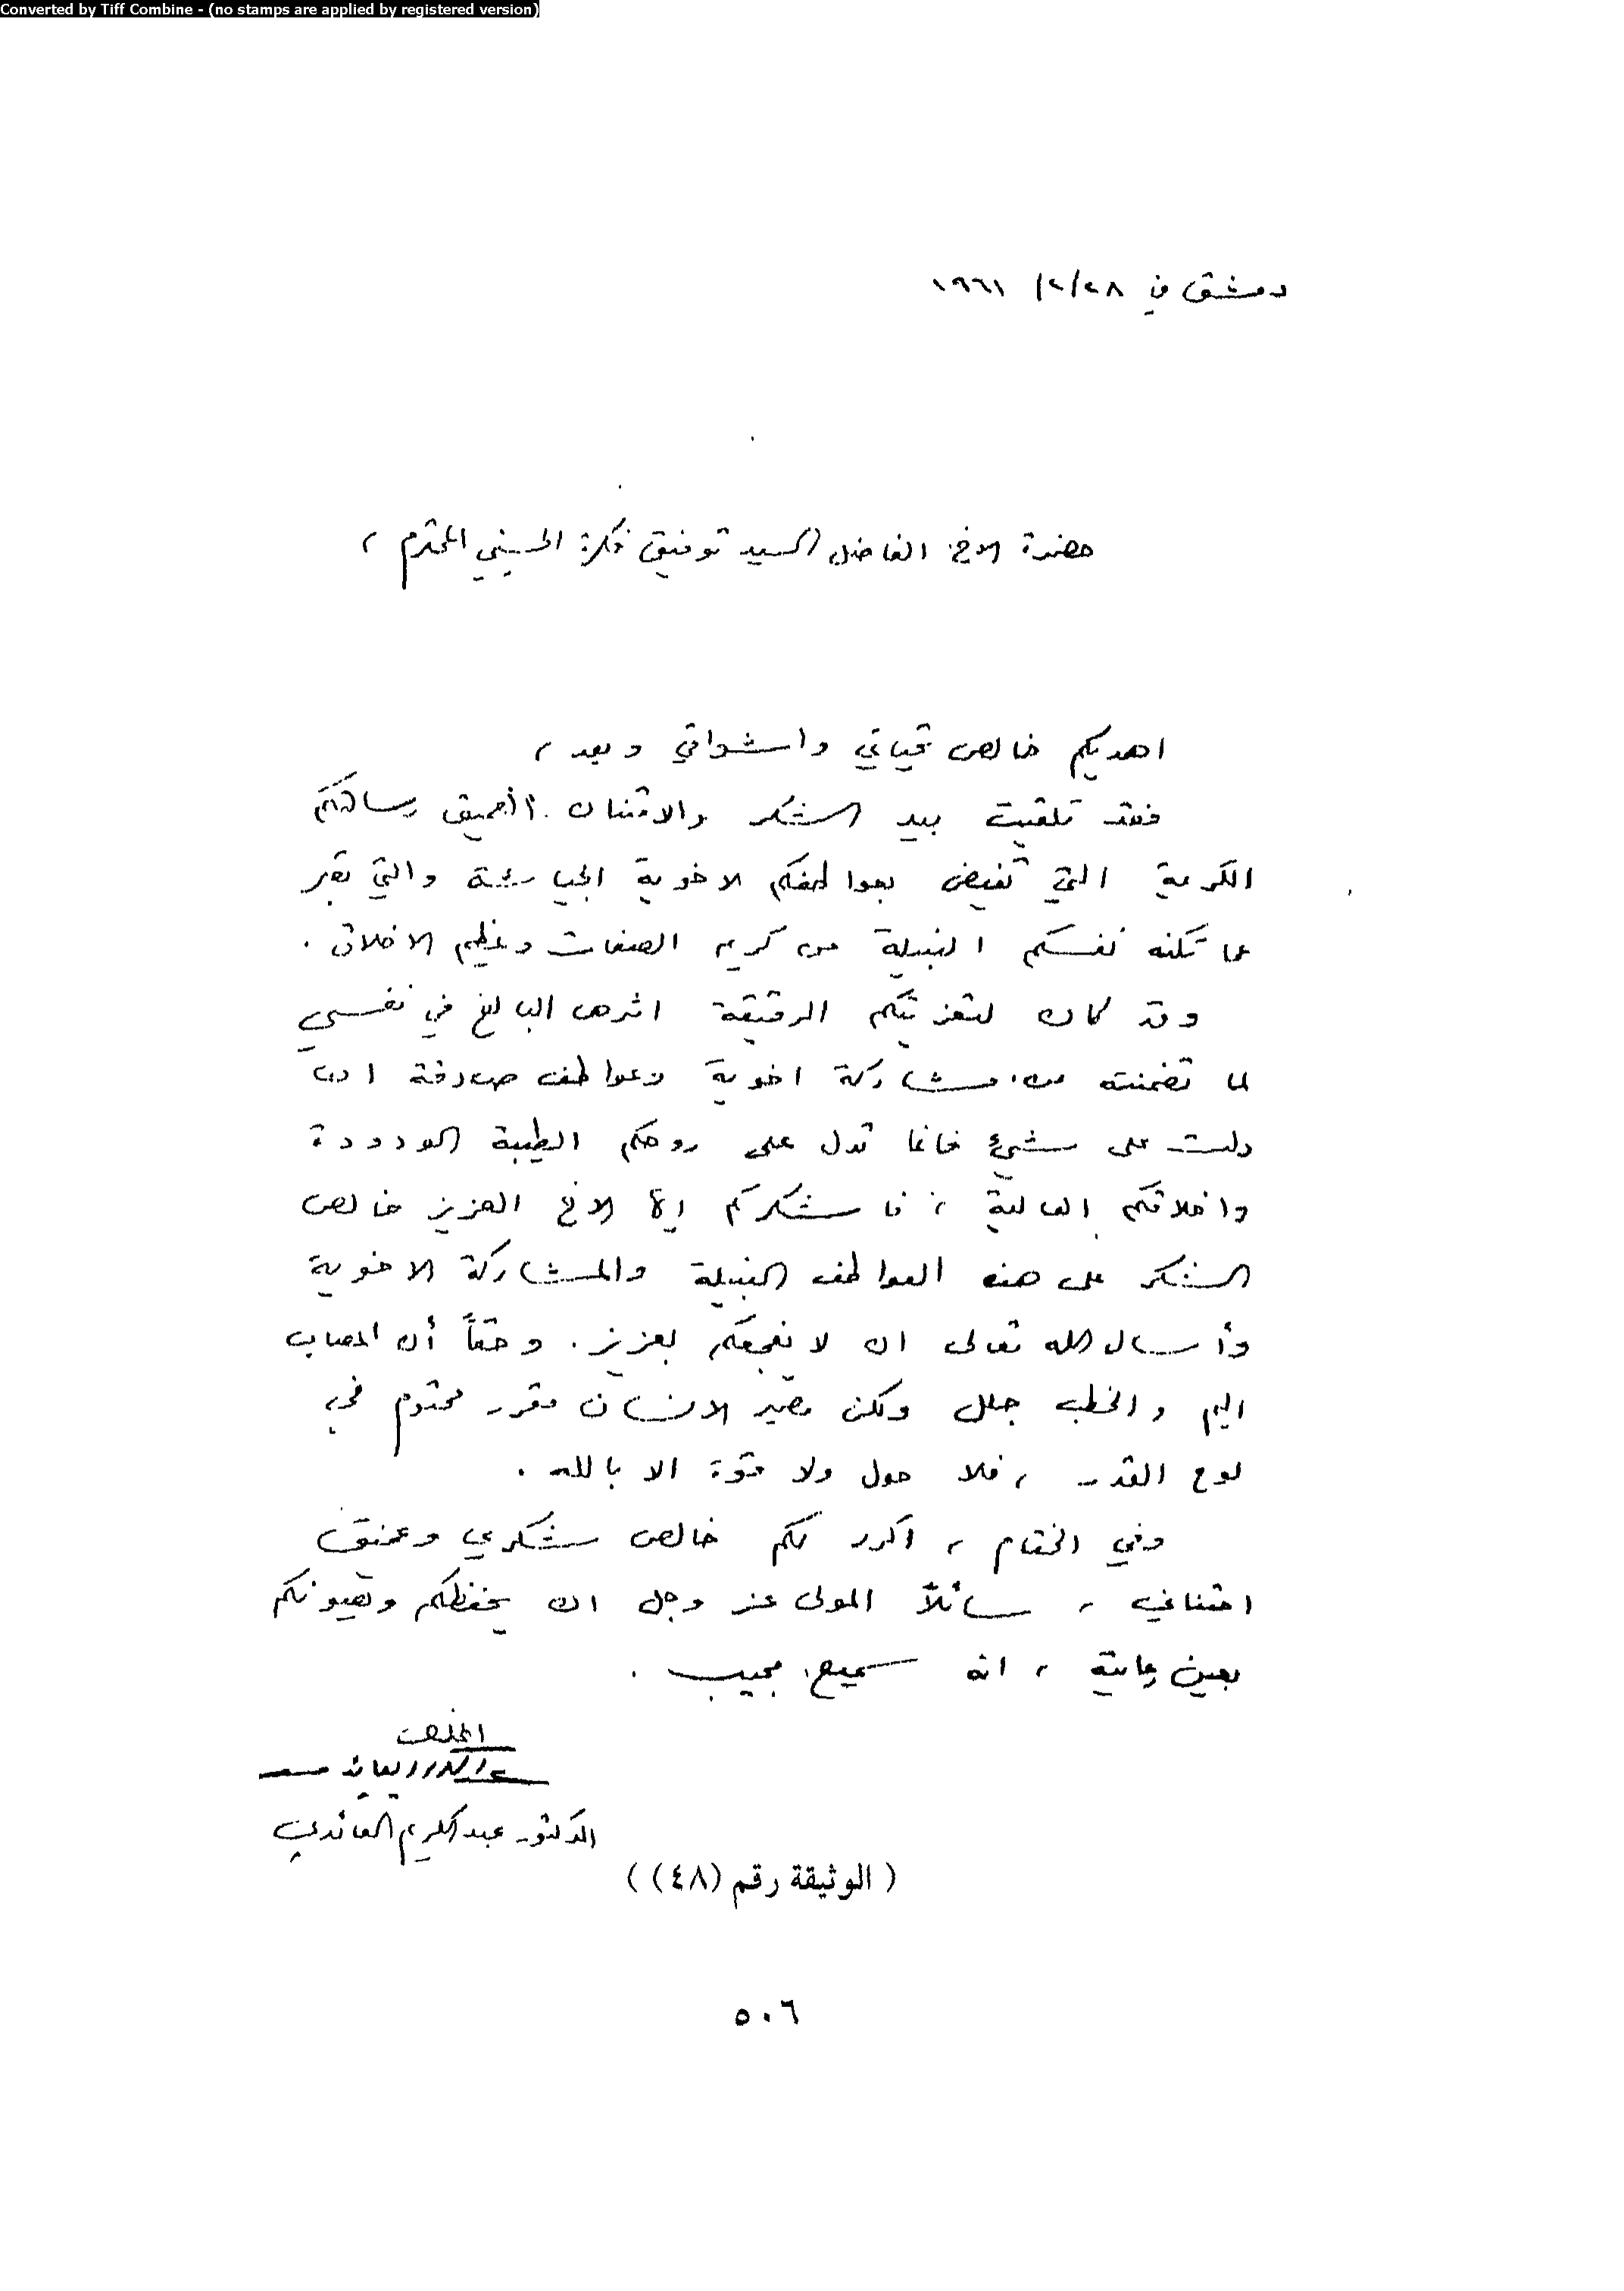 Converted by Tiff Combine - (no stamps are applied by registered version)
دمشق في ٢٨/٢/ ١٩٦١
حضرة الاخ الفاضل السيد توفيق فكرة الحسيني المحترم ،
اهديكم خالص تحياتي واشواقي وبعد ،
فقد تلقيت بيد الشكر والامتنان العميق رسالتكم
الكريمة التي تفيض بعواطفكم الاخوية الجياشة والتي تعبر
عما تكنه نفسكم النبيلة من كريم الصفات وعظيم الاخلاق .
وقد كان لتعزيتكم الرقيقة اثرها البالغ في نفسي
لما تضمنته من مشاركة اخوية وعواطف صادقة ان
دلت على شيئ فانما تدل على روحكم الطيبة الودودة
واخلاقكم العالية ، فاشكركم ايها الاخ العزيز خالص
الشكر على هذه العواطف النبيلة والمشاركة الاخوية
وأسال الله تعالى ان لا يفجعكم بعزيز . وحقاً أن المصاب
اليم والخطب جلل ولكن مصير الانسان مقرر محتوم في
لوح القدر ، فلا حول ولا قوة الا بالله .
وفي الختام ، اكرر لكم خالص شكري وعميق
امتناني ، سائلاً المولى عز وجل ان يحفظكم ويصونكم
بعين رعايته ، انه سميع مجيب .
المخلص
الدكتور عبد الكريم العائدي
( الوثيقة رقم (٤٨) )
٥٠٦